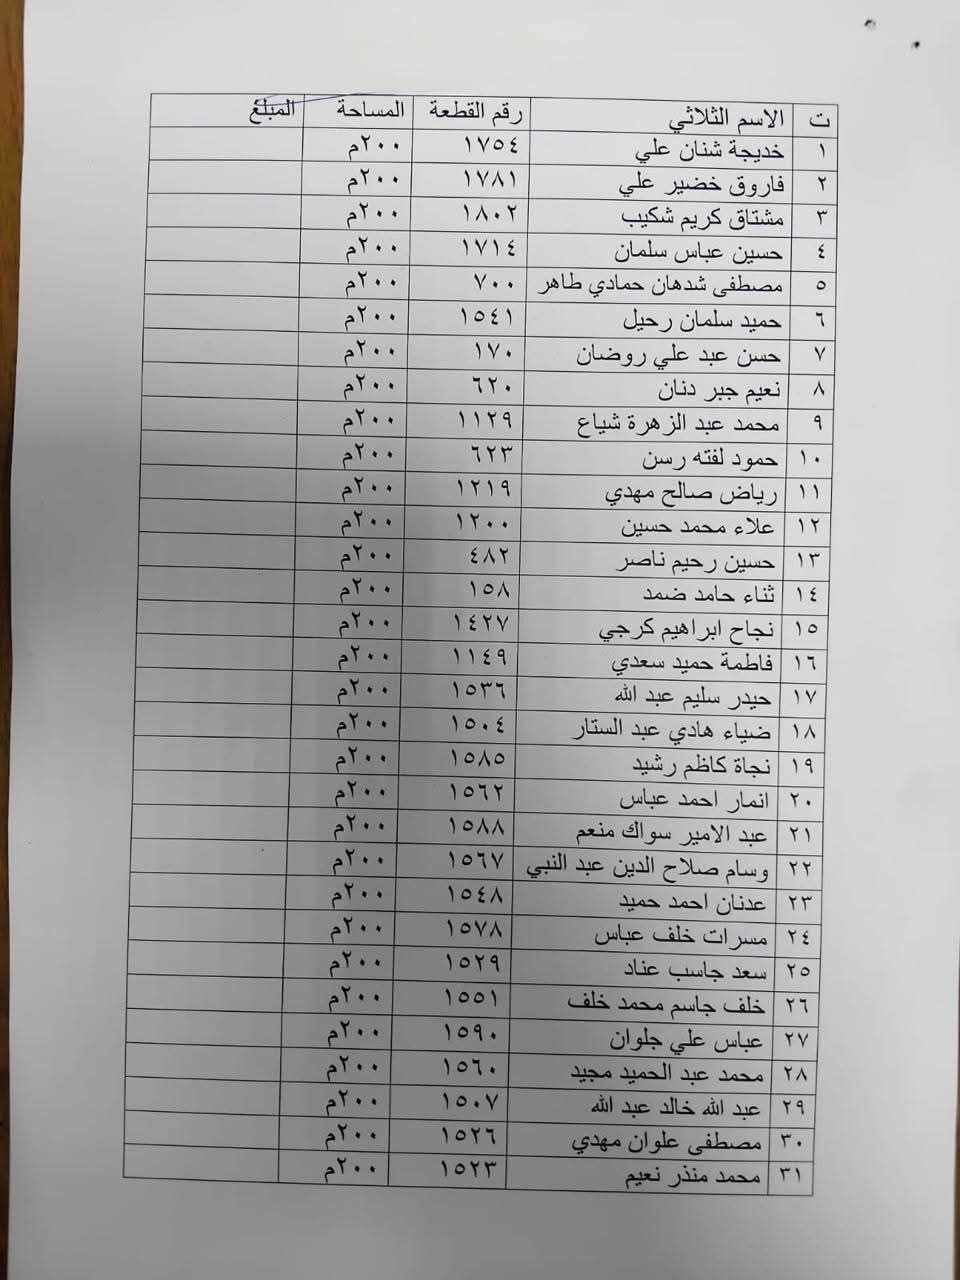 ت الاسم الثلاثي رقم القطعة المساحة المبلغ
١ خديجة شنان علي ١٧٥٤ ٢٠٠م
٢ فاروق خضير علي ١٧٨١ ٢٠٠م
٣ مشتاق كريم شكيب ١٨٠٢ ٢٠٠م
٤ حسين عباس سلمان ١٧١٤ ٢٠٠م
٥ مصطفى شدهان حمادي طاهر ٧٠٠ ٢٠٠م
٦ حميد سلمان رحيل ١٥٤١ ٢٠٠م
٧ حسن عبد علي روضان ١٧٠ ٢٠٠م
٨ نعيم جبر دنان ٦٢٠ ٢٠٠م
٩ محمد عبد الزهرة شياع ١١٢٩ ٢٠٠م
١٠ حمود لفته رسن ٦٢٣ ٢٠٠م
١١ رياض صالح مهدي ١٢١٩ ٢٠٠م
١٢ علاء محمد حسين ١٢٠٠ ٢٠٠م
١٣ حسين رحيم ناصر ٤٨٢ ٢٠٠م
١٤ ثناء حامد ضمد ١٥٨ ٢٠٠م
١٥ نجاح ابراهيم كرجي ١٤٢٧ ٢٠٠م
١٦ فاطمة حميد سعدي ١١٤٩ ٢٠٠م
١٧ حيدر سليم عبد الله ١٥٣٦ ٢٠٠م
١٨ ضياء هادي عبد الستار ١٥٠٤ ٢٠٠م
١٩ نجاة كاظم رشيد ١٥٨٥ ٢٠٠م
٢٠ انمار احمد عباس ١٥٦٢ ٢٠٠م
٢١ عبد الامير سواك منعم ١٥٨٨ ٢٠٠م
٢٢ وسام صلاح الدين عبد النبي ١٥٦٧ ٢٠٠م
٢٣ عدنان احمد حميد ١٥٤٨ ٢٠٠م
٢٤ مسرات خلف عباس ١٥٧٨ ٢٠٠م
٢٥ سعد جاسب عناد ١٥٢٩ ٢٠٠م
٢٦ خلف جاسم محمد خلف ١٥٥١ ٢٠٠م
٢٧ عباس علي جلوان ١٥٩٠ ٢٠٠م
٢٨ محمد عبد الحميد مجيد ١٥٦٠ ٢٠٠م
٢٩ عبد الله خالد عبد الله ١٥٠٧ ٢٠٠م
٣٠ مصطفى علوان مهدي ١٥٢٦ ٢٠٠م
٣١ محمد منذر نعيم ١٥٢٣ ٢٠٠م